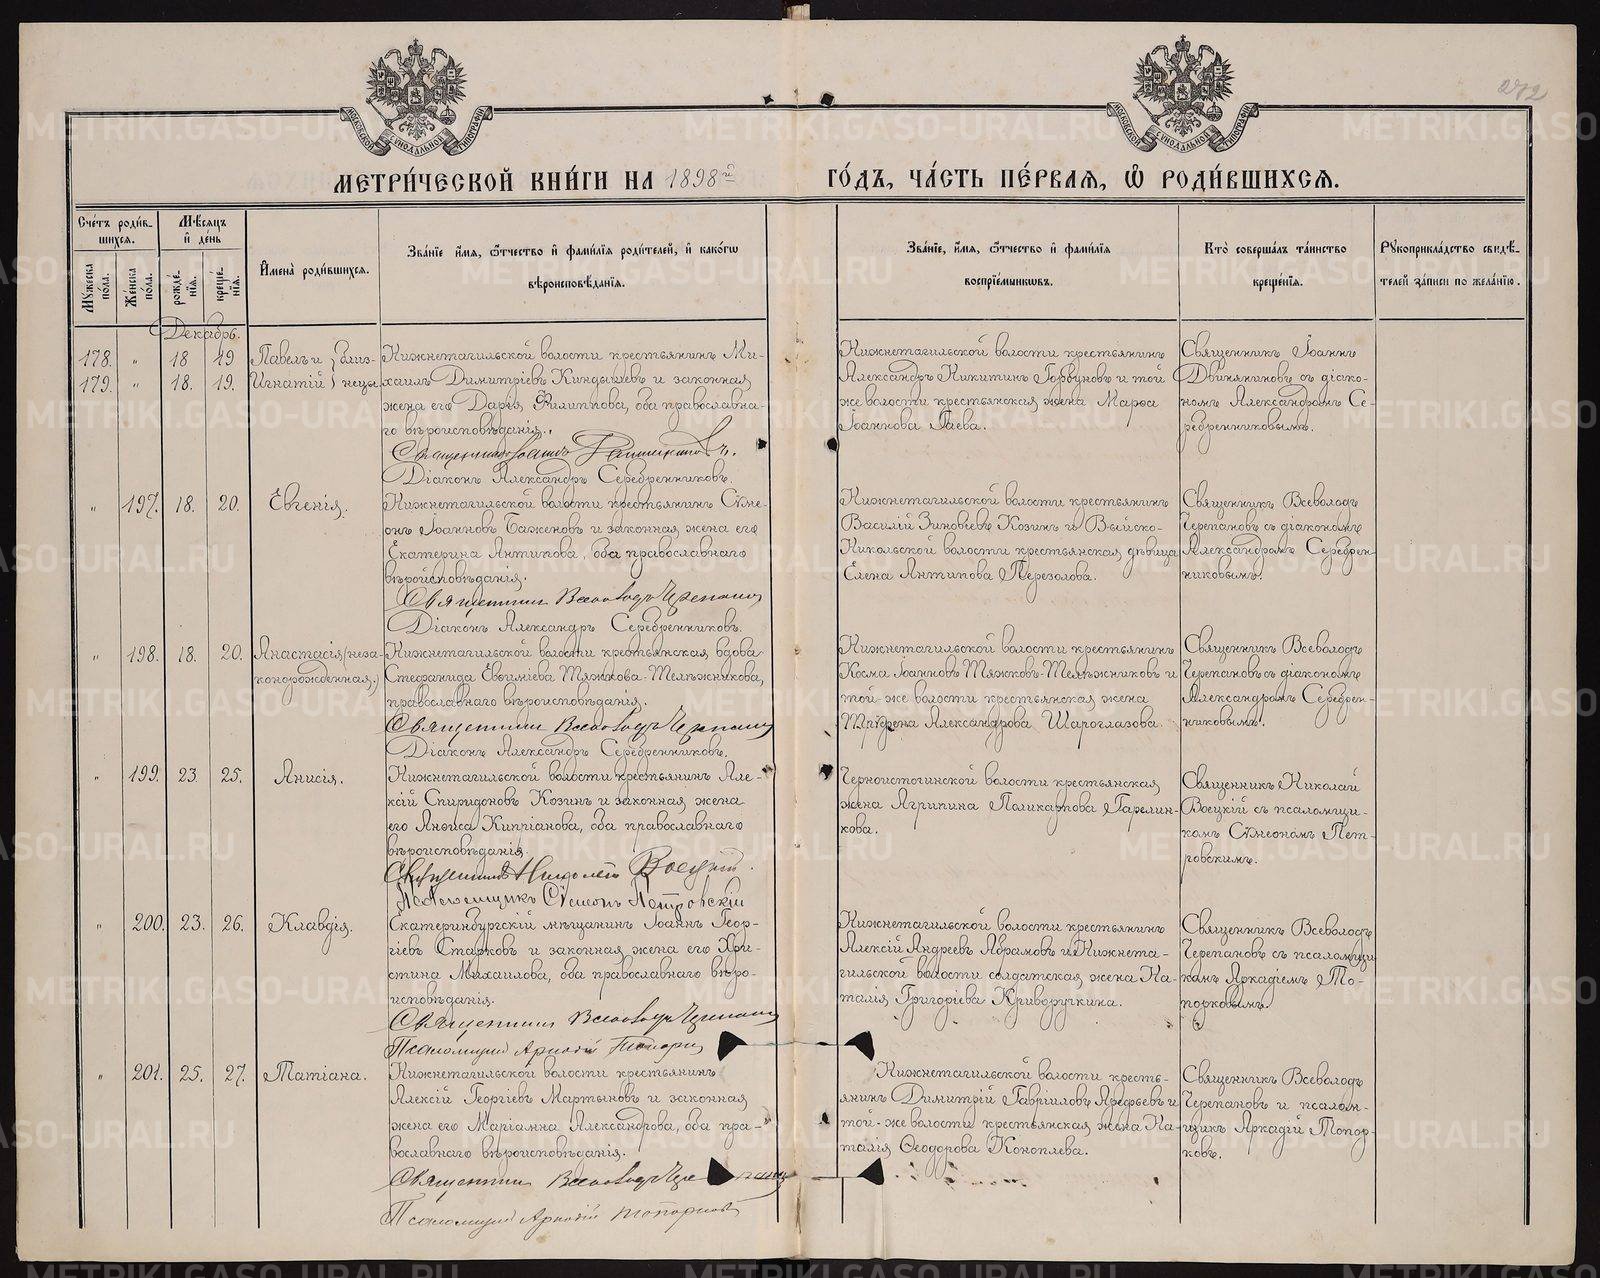 272
МОСКОВСКОЙ СУНОДАЛЬНОЙ ТИПОГРАФІИ
МОСКОВСКОЙ СУНОДАЛЬНОЙ ТИПОГРАФІИ
МЕТРИ́ЧЕСКОЙ КНИ́ГИ НА 1898й ГО́ДЪ, ЧА́СТЬ ПЕ́РВАЯ, Ѽ РОДИ́ВШИХСЯ.
Сче́тъ роди́в-
шихся.
Мѣ́сяцъ
и҆ де́нь
Мꙋ́жеска по́ла.
Же́нска по́ла.
рожде́-
нїя.
креще́-
нїя.
И҆мена̀ роди́вшихся.
Зва́нїе и҆́мя, ѻ҆́тчество и҆ фами́лїя роди́телей, и҆ како́гѡ
вѣроисповѣ́данїя.
Зва́нїе, и҆́мя, ѻ҆́тчество и҆ фами́лїя
воспрїе́мникѡвъ.
Кто̀ соверша́лъ та́инство
креще́нїя.
Рꙋкоприкла́дство свидѣ́-
телей за́писи по жела́нїю.
Декабрь.
178. " 18 19 Павелъ и } близ-
179. " 18. 19. Игнатій } нецы
Нижнетагильской волости крестьянинъ Ми-
хаилъ Димитріевъ Киндышевъ и законная
жена его Дарья Филиппова, оба православна-
го вѣроисповѣданія.
Діаконъ Александръ Серебренниковъ.
Нижнетагильской волости крестьянинъ
Александръ Никитинъ Горбуновъ и той
же волости крестьянская жена Марѳа
Іоаннова Гаева.
Священникъ Іоаннъ
Двиняниновъ съ діако-
номъ Александромъ Се-
ребренниковымъ.
" 197. 18. 20. Евгенія.
Нижнетагильской волости крестьянинъ Сѵме-
онъ Іоанновъ Баженовъ и законная жена его
Екатерина Антипова, оба православнаго
вѣроисповѣданія.
Священникъ Всеволодъ Черепановъ
Діаконъ Александръ Серебренниковъ.
Нижнетагильской волости крестьянинъ
Василій Зиновіевъ Козинъ и Выйско-
Никольской волости крестьянская дѣвица
Елена Антипова Перезолова.
Священникъ Всеволодъ
Черепановъ съ діакономъ
Александромъ Серебрен-
никовымъ.
" 198. 18. 20. Анастасія (неза-
конорожденная.)
Нижнетагильской волости крестьянская вдова
Стефанида Евѳиміева Тяжкова-Телѣжникова,
православнаго вѣроисповѣданія.
Священникъ Всеволодъ Черепановъ
Діаконъ Александръ Серебренниковъ.
Нижнетагильской волости крестьянинъ
Косма Іоанновъ Тяжковъ-Телѣжниковъ и
той-же волости крестьянская жена
Ирина Александрова Шароглазова.
Священникъ Всеволодъ
Черепановъ съ діакономъ
Александромъ Серебрен-
никовымъ.
" 199. 23. 25. Анисія.
Нижнетагильской волости крестьянинъ Але-
ксій Спиридоновъ Козинъ и законная жена
его Анѳиса Кипріанова, оба православнаго
вѣроисповѣданія.
Священникъ Николай Воецкій.
Псаломщикъ Сѵмеонъ Петровскій
Черноисточинской волости крестьянская
жена Агрипина Поликарпова Гарелин-
кова.
Священникъ Николай
Воецкій съ псаломщи-
комъ Сѵмеономъ Пет-
ровскимъ.
" 200. 23. 26. Клавдія.
Екатеринбургскій мѣщанинъ Іоаннъ Геор-
гіевъ Старковъ и законная жена его Хри-
стина Михаилова, оба православнаго вѣро-
исповѣданія.
Священникъ Всеволодъ Черепановъ
Псаломщикъ Аркадій Топорковъ
Нижнетагильской волости крестьянинъ
Алексій Андреевъ Абрамовъ и Нижнета-
гильской волости солдатская жена На-
талія Григоріева Криворучкина.
Священникъ Всеволодъ
Черепановъ съ псаломщи-
комъ Аркадіемъ То-
порковымъ.
" 201. 25. 27. Татіана.
Нижнетагильской волости крестьянинъ
Алексій Георгіевъ Мартыновъ и законная
жена его Маріамна Александрова, оба пра-
вославнаго вѣроисповѣданія.
Священникъ Всеволодъ Черепановъ
Псаломщикъ Аркадій Топорковъ
Нижнетагильской волости кресть-
янинъ Димитрій Гавріиловъ Арефьевъ и
той-же волости крестьянская жена На-
талія Ѳеодорова Коноплева.
Священникъ Всеволодъ
Черепановъ и псалом-
щикъ Аркадій Топор-
ковъ.
METRIKI.GASO-URAL.RU